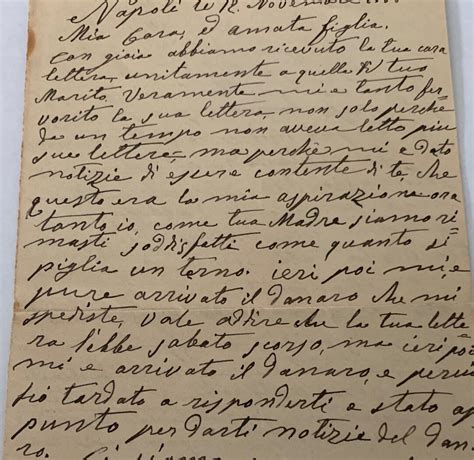 Napoli le 12 Novembre
Mia Cara, ed amata figlia.
Con gioia abbiamo ricevuto la tua cara
lettera, unitamente a quella di tuo
Marito. Veramente mi e tanto fa-
vorito la sua lettera, non solo perchè
da un tempo non aveva letto piu
sue lettere, ma perchè mi e dato
notizie di essere contente di te, che
questo era la mia aspirazione ora
tanto io, come tua Madre siamo ri-
masti soddisfatti come quanto si
piglia un terno. ieri poi mi e
pure arrivato il danaro che mi
spediste, vale a dire che la tua lette-
ra l'ebbe sabato scorso, ma ieri poi
mi e arrivato il danaro, e perciò
sio tardato a risponderti e stato ap-
punto per darti notizie del dana-
ro.